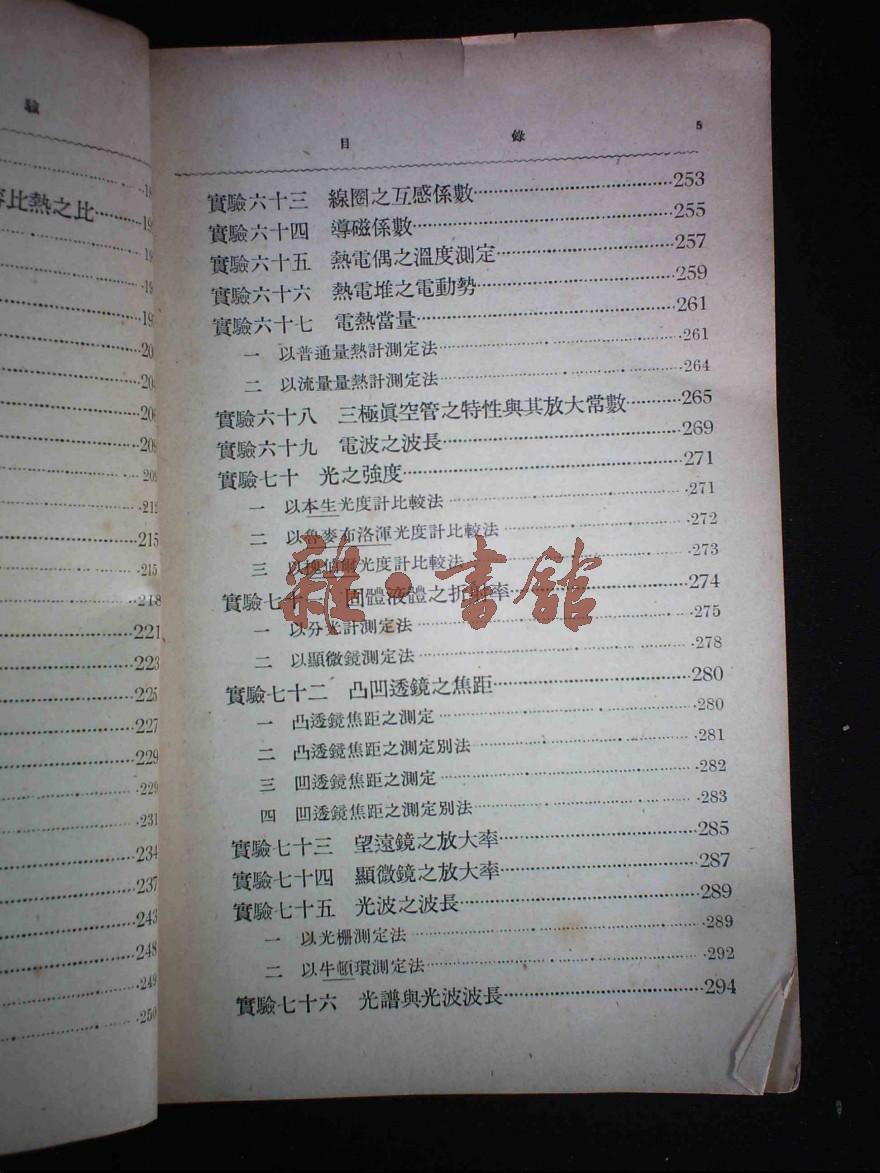 驗
容比熱之比………19
221
223
225
227
229
229
231
234
237
243
248
249
250
目 錄 5
實驗六十三 線圈之互感係數………253
實驗六十四 導磁係數………255
實驗六十五 熱電偶之溫度測定………257
實驗六十六 熱電堆之電動勢………259
實驗六十七 電熱當量………261
一 以普通量熱計測定法………261
二 以流量量熱計測定法………264
實驗六十八 三極眞空管之特性與其放大常數………265
實驗六十九 電波之波長………269
實驗七十 光之強度………271
一 以本生光度計比較法………271
二 以魯麥布洛渾光度計比較法………272
三 以光度計比較法………273
實驗七十一 固體液體之折射率………274
一 以分光計測定法………275
二 以顯微鏡測定法………278
實驗七十二 凸凹透鏡之焦距………280
一 凸透鏡焦距之測定………280
二 凸透鏡焦距之測定別法………281
三 凹透鏡焦距之測定………282
四 凹透鏡焦距之測定別法………283
實驗七十三 望遠鏡之放大率………285
實驗七十四 顯微鏡之放大率………287
實驗七十五 光波之波長………289
一 以光柵測定法………289
二 以牛頓環測定法………292
實驗七十六 光譜與光波波長………294
雜·書館